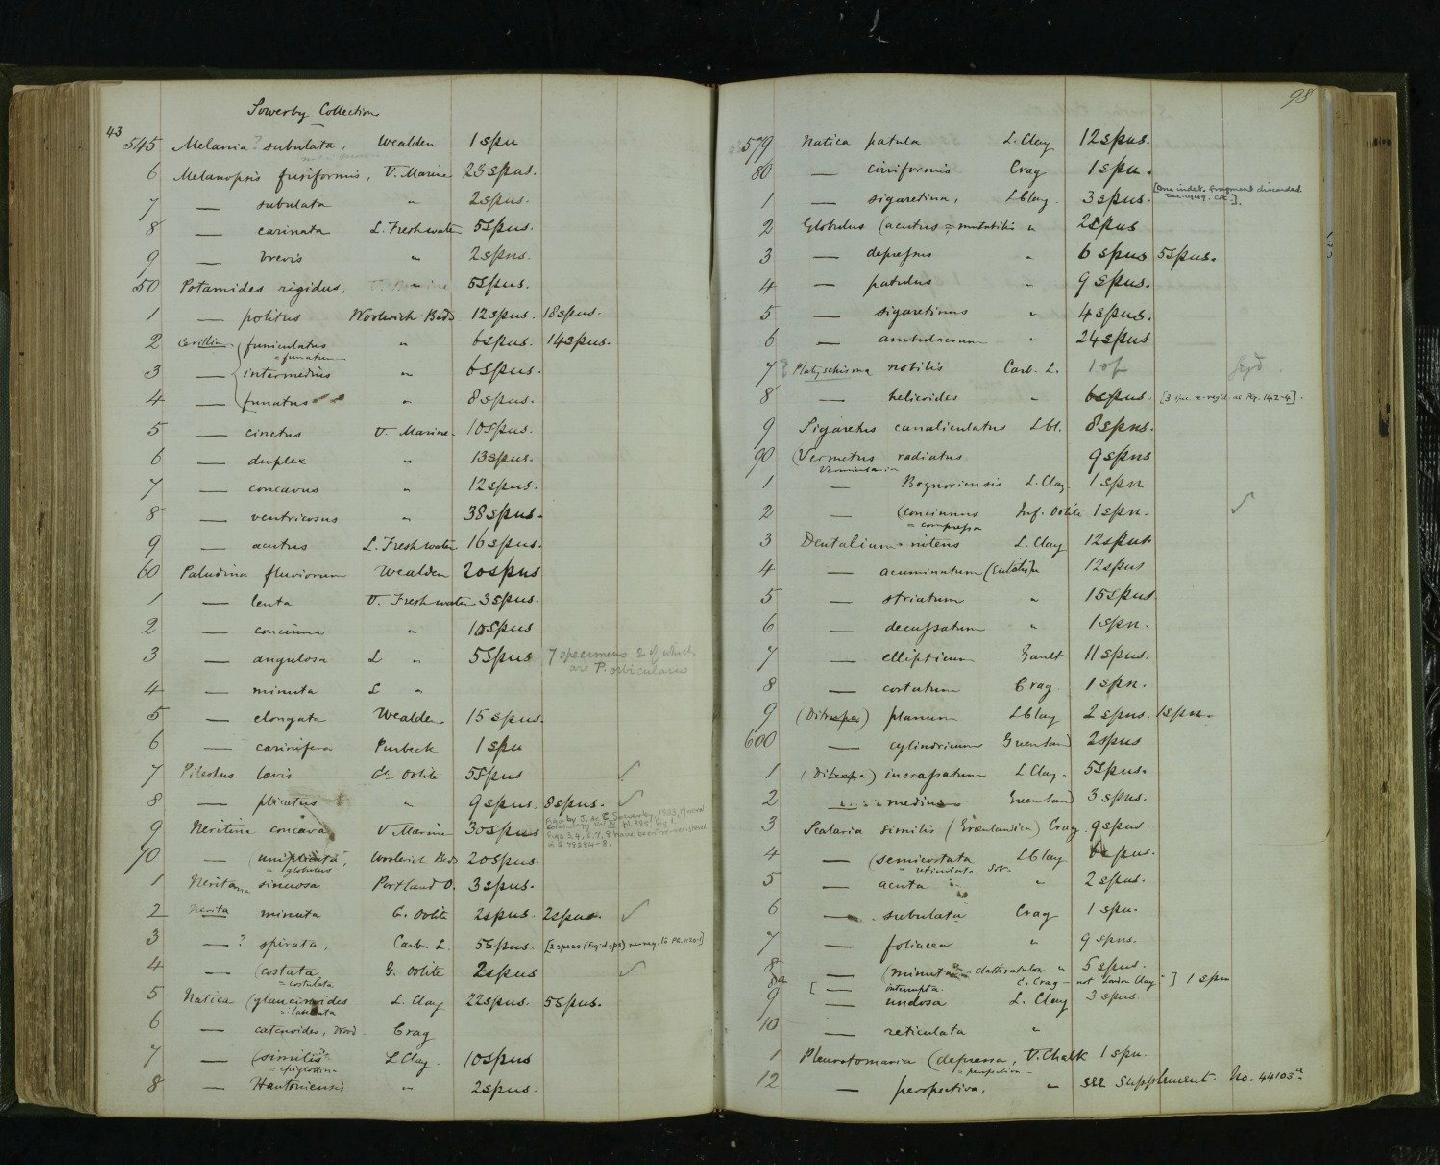 Sowerby Collection
43
545 Melania ? subulata, Wealden 1 spn
6 Melanopsis fusiformis, U. Marine 28 spns.
7 — subulata " 2 spns.
8 — carinata L. Freshwater 5 spns.
9 — brevis " 2 spns.
50 Potamides rigidus, 5 spns.
1 — politus Woolwich Beds 12 spns. 18 spns.
2 (funiculatus " 6 spns. 14 spns.
= funatum
3 — intermedius " 6 spns.
4 — funatus " 8 spns.
5 — cinctus U. Marine. 10 spns.
6 — duplex " 13 spns.
7 — concavus " 12 spns.
8 — ventricosus " 38 spns.
9 — acutus L. Freshwater 16 spns.
60 Paludina fluviorum Wealden 20 spns
1 — lenta U. Freshwater 3 spns.
2 — concinna " 10 spns
3 — angulosa L " 5 spns 7 specimens 2 of which
are P. orbicularis
4 — minuta L "
5 — elongata Wealden 15 spns.
6 — carinifera Purbeck 1 spn
7 Pileolus lævis Gt. Oolite 5 spns ✓
8 — plicatus " 9 spns. 8 spns. ✓
9 Neritina concava U Marine 30 spns
70 — (uniplicata, Woolwich Beds 20 spns.
= globulus
1 Neritoma sinuosa Portland O. 3 spns.
2 Nerita minuta G. Oolite 2 spns. 2 spns. ✓
3 — ? spirata, Carb. L. 5 spns.
4 — (costata G. Oolite 2 spns ✓
= costulata
5 Natica (glaucinoides L. Clay 22 spns. 5 spns.
6 — catenoides, Wood Crag
7 — (similis L Clay. 10 spns
8 — Hantoniensis " 2 spns.
98
579 Natica patula L. Clay 12 spns.
80 — cirriformis Crag 1 spn.
1 — sigaretina, L Clay. 3 spns. [One indet. fragment discarded
2 Globulus (acutus = mutabilis " 2 spns
3 — depressus " 6 spns 5 spns.
4 — patulus " 9 spns.
5 — sigaretinus " 4 spns.
6 — ambulacrum " 24 spns
7 ? Platyschisma nobilis Carb. L. 1 of figd.
8 — helicoides " 6 spns.
9 Sigaretus canaliculatus L Cl. 8 spns.
90 (Vermetus radiatus 9 spns
Vermicularia
1 — Bognoriensis L. Clay 1 spn
2 — (concinnus Inf. Oolite 1 spn. ✓
= compressa
3 Dentalium nitens L. Clay 12 spns
4 — acuminatum 12 spns
5 — striatum " 15 spns
6 — decussatum " 1 spn.
7 — ellipticum Gault 11 spns.
8 — costatum Crag 1 spn.
9 (Ditrupa) planum L Clay 2 spns. 1 spn.
600 — cylindricum Greensand 2 spns
1 (Ditrupa) incrassatum L Clay. 5 spns.
2 medium Greensand 3 spns.
3 Scalaria similis (Grœnlandica) Crag. 9 spns
4 — (semicostata L Clay 6 spns.
= reticulata Sow.
5 — acuta " 2 spns.
6 — subulata Crag 1 spn.
7 — foliacea " 9 spns.
8 — (minuta = clathratula " 5 spns.
8a [ — interrupta. C. Crag – not London Clay ] 1 spn
9 — undosa L. Clay 3 spns.
10 — reticulata "
1 Pleurotomaria (depressa, U. Chalk 1 spn.
= perspectiva
12 — perspectiva, " see supplement. No. 44103a